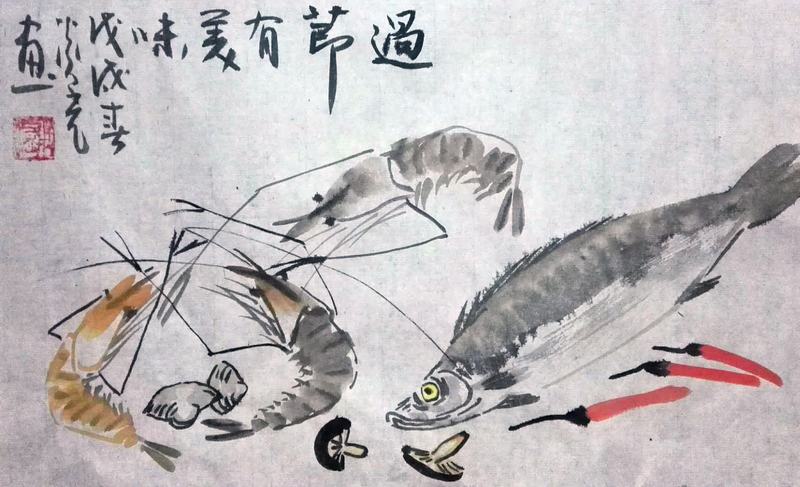 過節有美味
戊戌春
炎
画